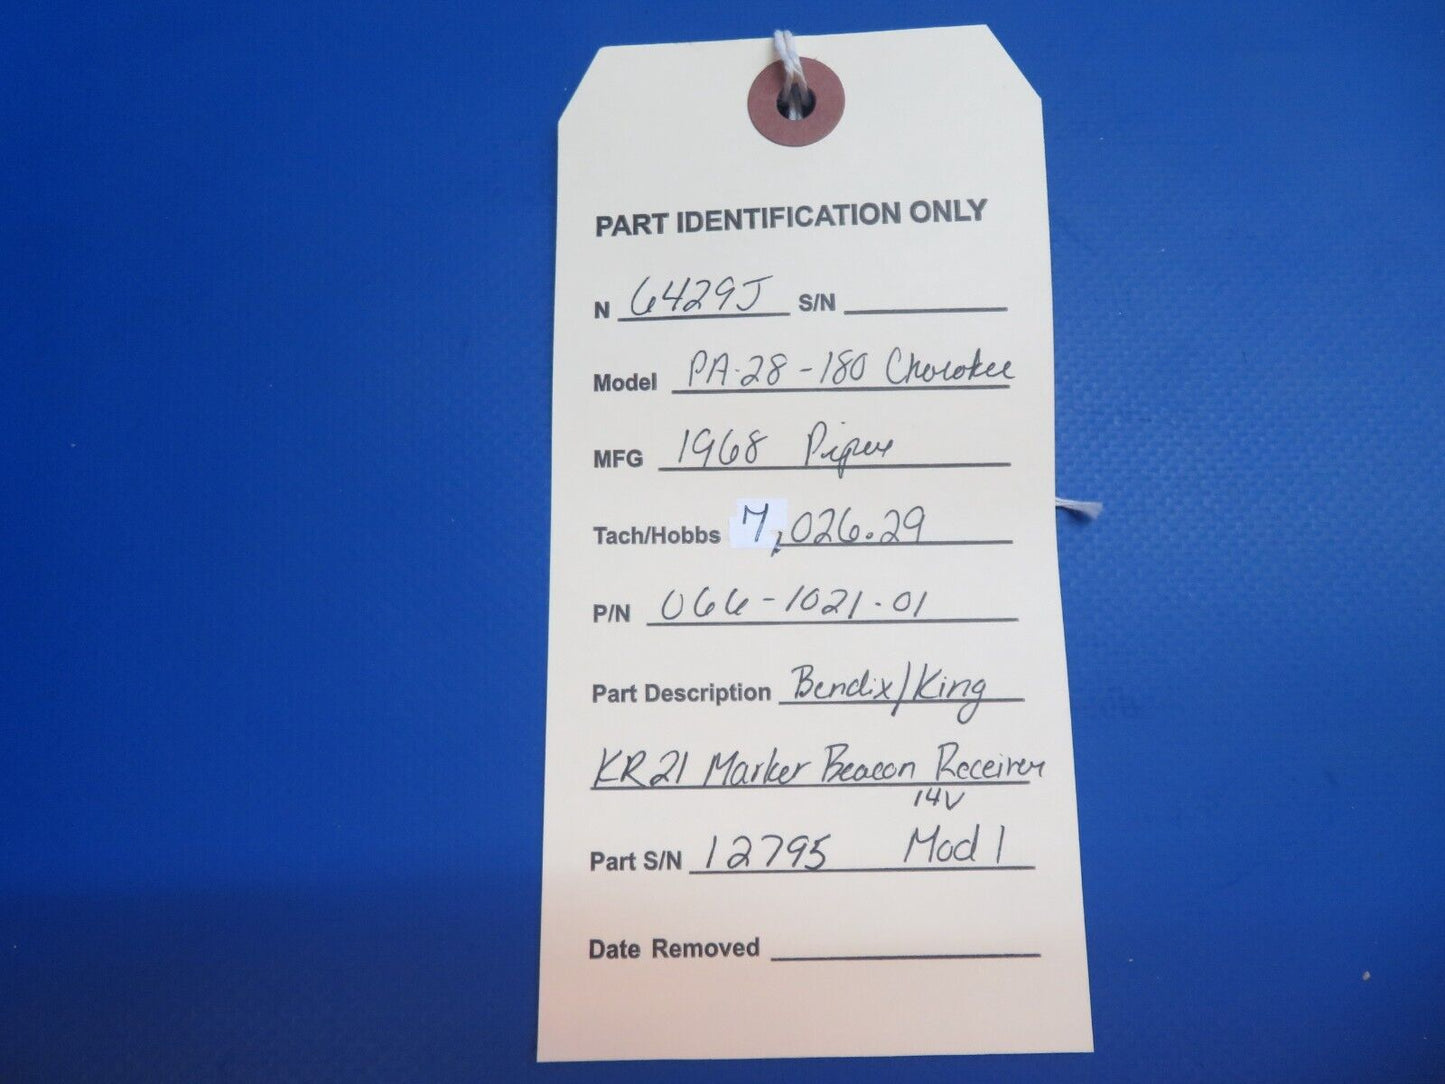 PART IDENTIFICATION ONLY
N 6429J S/N
Model PA-28-180 Cherokee
MFG 1968 Piper
Tach/Hobbs 7,026.29
P/N 066-1021-01
Part Description Bendix/King
KR21 Marker Beacon Receiver
14V
Part S/N 12795 Mod 1
Date Removed